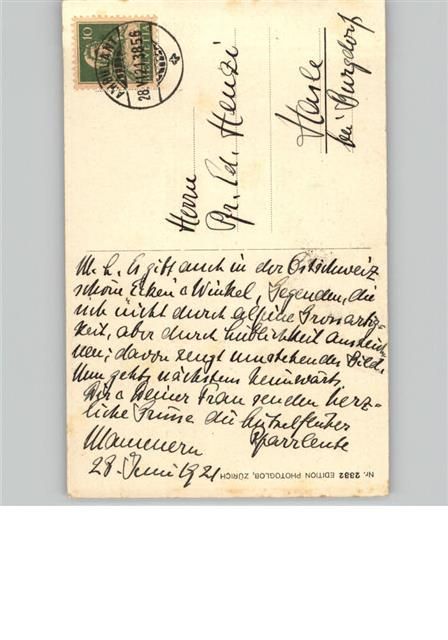 10
HELVETIA
AMBULANT
28.VI.21.3856
Herrn
Pfr. Ed. Henzi
Hasle
bei Burgdorf
M. L. Es gibt auch in der Ostschweiz
schöne Ecken & Winkel, Gegenden, die
sich nicht durch alpine Grossartig-
keit, aber durch Lieblichkeit auszeich-
nen; davon zeugt umstehendes Bild.
Nun gehts nächstens heimwärts.
Dir & Deiner Frau senden herz-
liche Grüsse die Lützelflüher
Pfarrleute
Mammern
28. Juni 1921
Nr. 2332 EDITION PHOTOGLOB, ZÜRICH